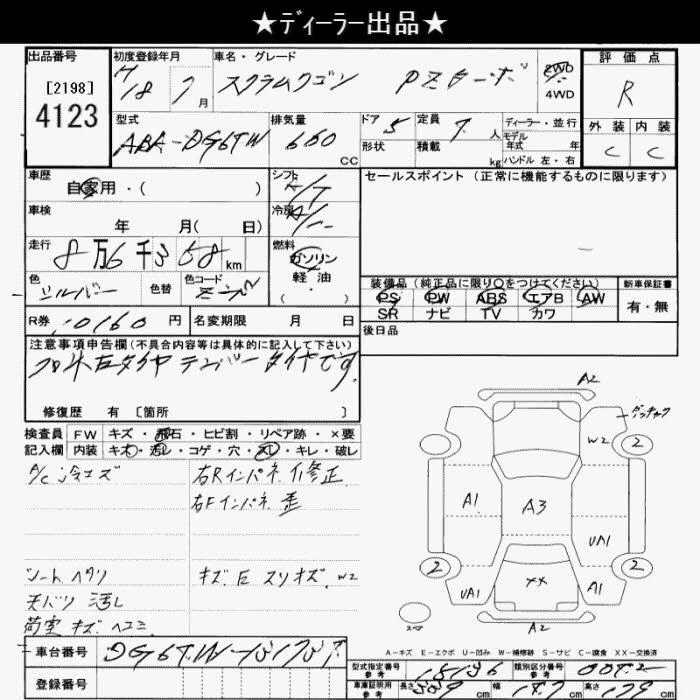 ★ディーラー出品★
出品番号 初度登録年月 車名・グレード 評価点
[2198]
4123
H18 7月 スクラムワゴン PZターボ 2WD 4WD R
型式 排気量 ドア 5 定員 人 ディーラー・並行 外装 内装
ABA-DG64W 660 cc 形状 積載 kg モデル年式 年 ハンドル 左・右 C C
車歴 シフト セールスポイント(正常に機能するものに限ります)
自家用・( )
車検 冷房
年 月( 日)
走行 燃料
8万6千3 58 km ガソリン
軽・油
( )
色 色替 色コード
シルバー
装備品(純正品に限り○をつけてください) 新車保証書
PS PW ABS エアB AW 有・無
SR ナビ TV カワ
R券 10160 円 名変期限 月 日 後日品
注意事項申告欄(不具合内容等は具体的に記入して下さい)
テンパータイヤです
修復歴 有 [箇所 ]
検査員 FW キズ・飛石・ヒビ割・リペア跡・×要
記入欄 内装 キズ・汚レ・コゲ・穴・スレ・キレ・破レ
A/C 冷エズ 右Rインパネ 修正
右Fインパネ 歪
シートヘタリ キズ E スリキズ W2
天バリ 汚レ
荷室 キズ ヘコミ
A2
W2 2
A1 A3
UA1
2 2
UA1 XX A1
スペア A2
A-キズ E-エクボ U-凹み W-補修跡 S-サビ C-腐食 XX-交換済
車台番号
登録番号
型式指定番号 参考 15136 類別区分番号 参考
車庫証明用 参考 長さ 339 cm 幅 147 cm 高さ 179 cm